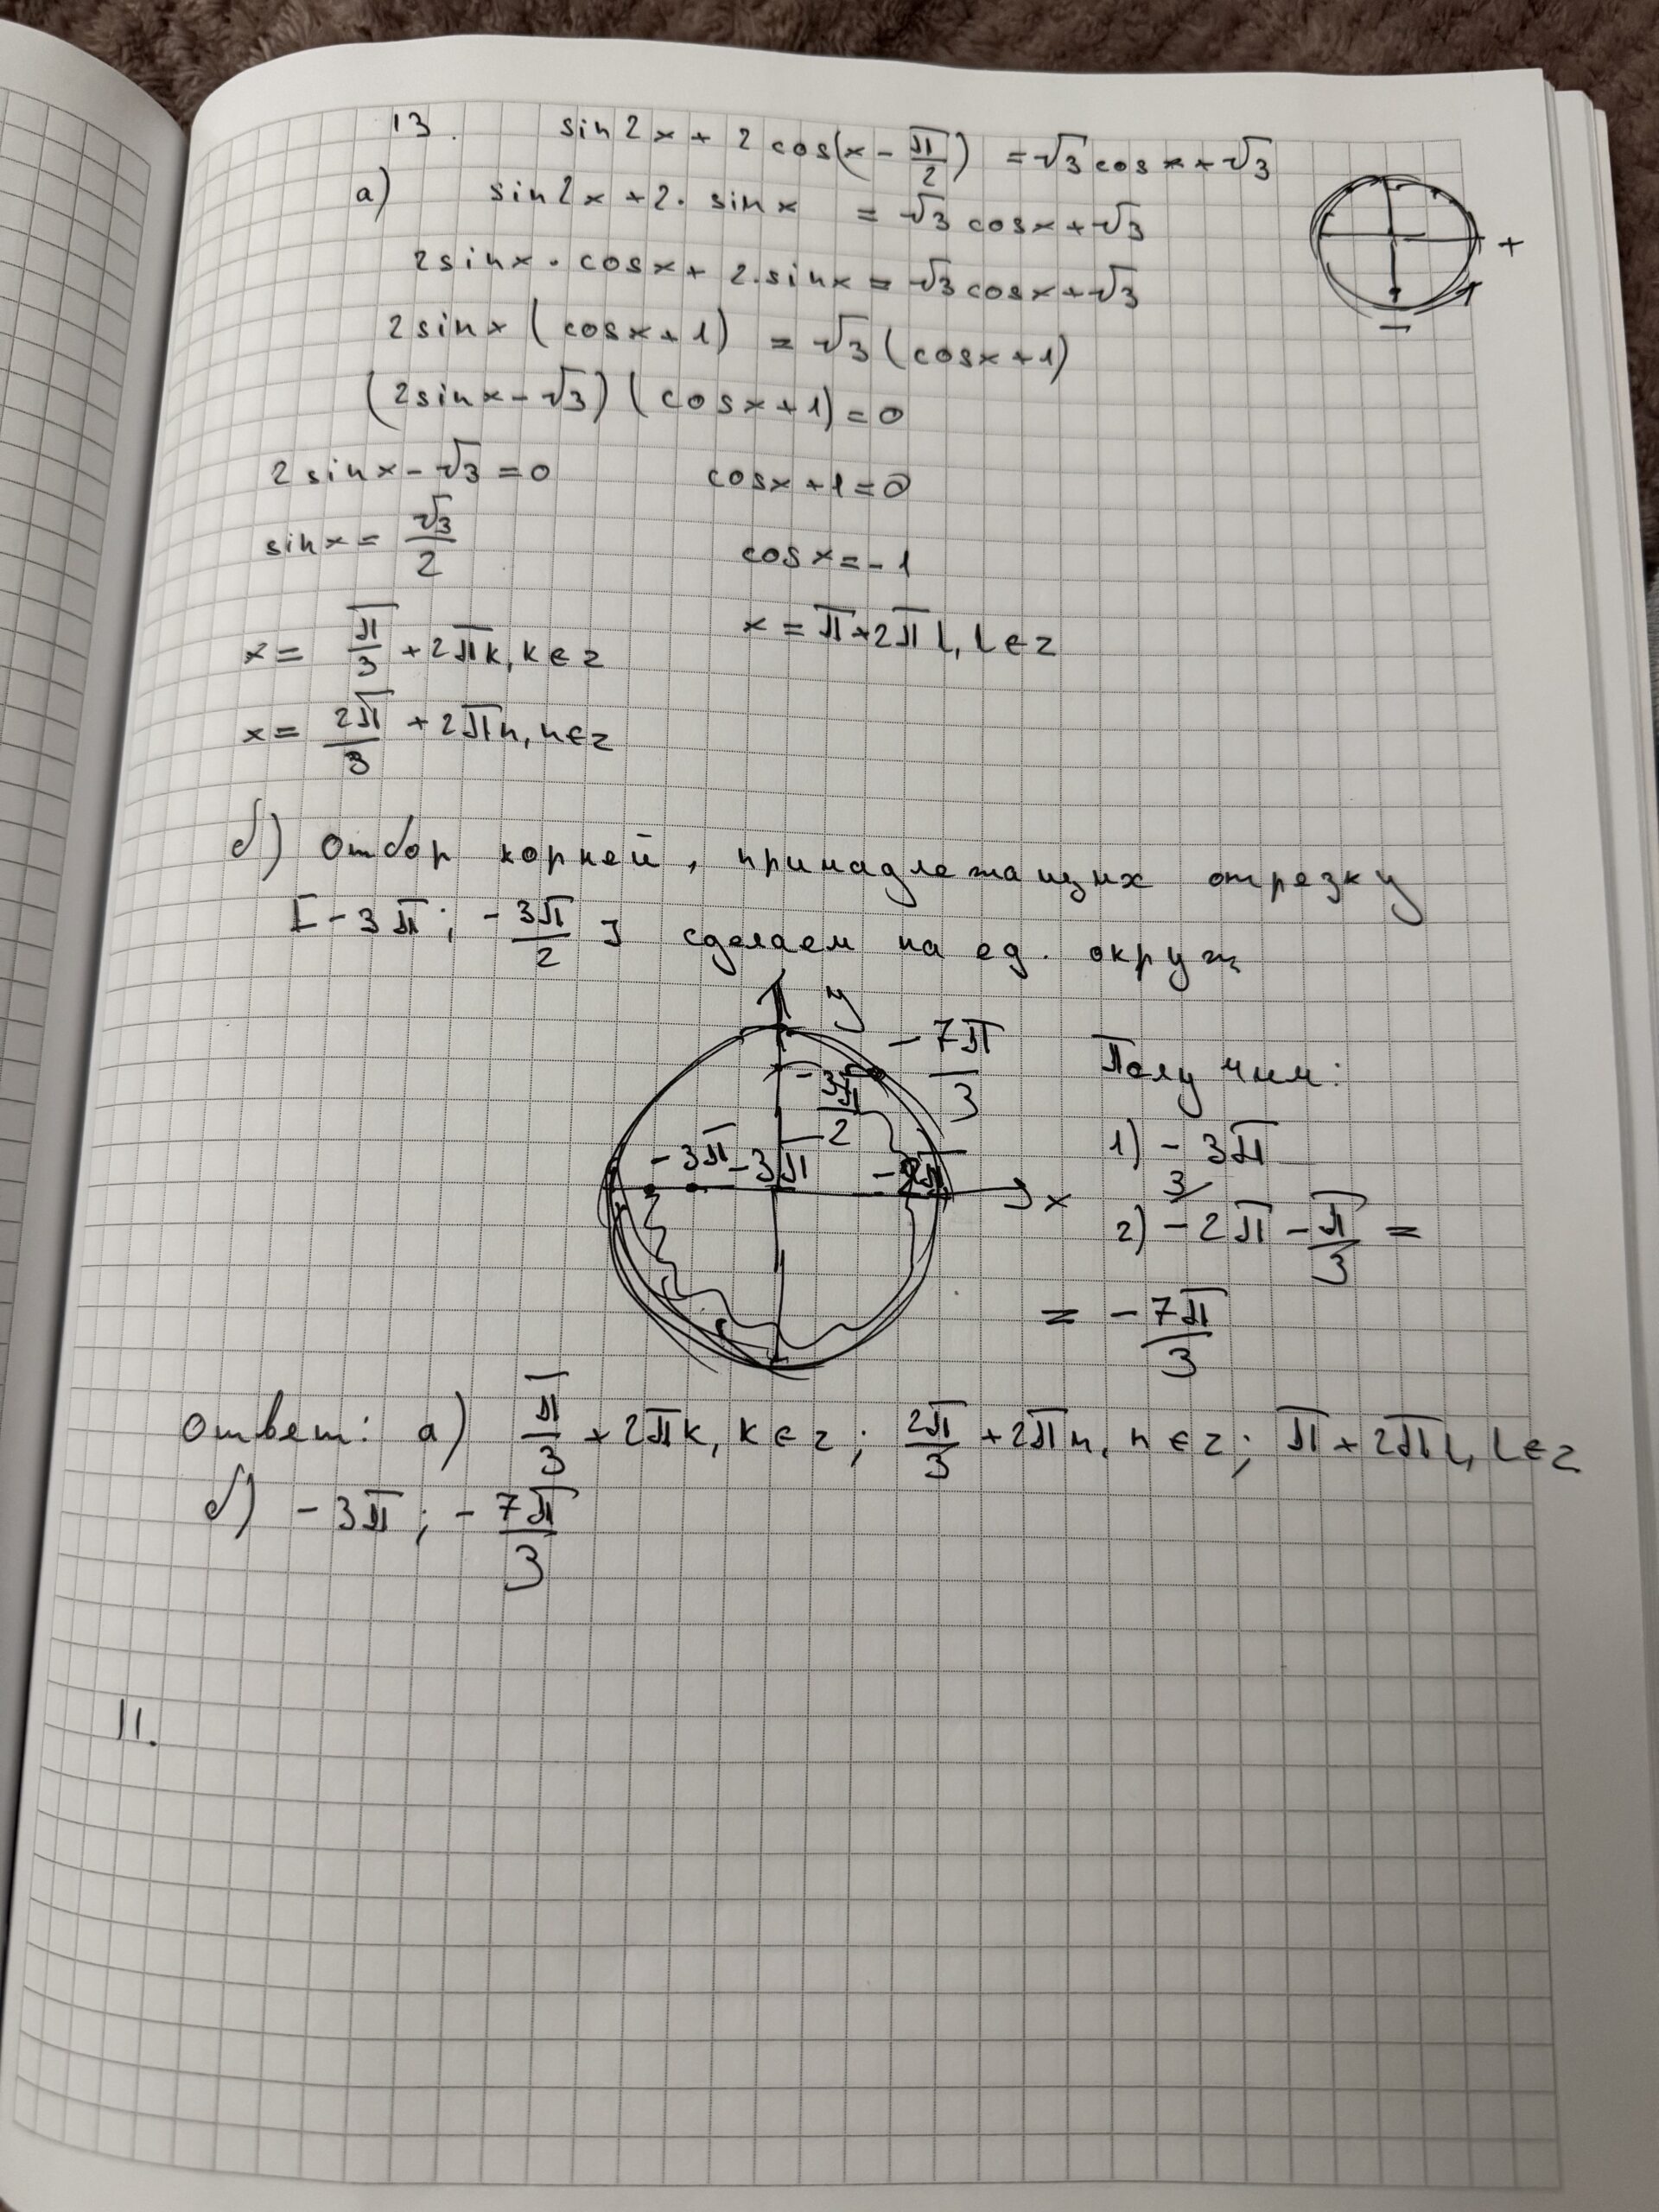 13. sin2x + 2cos(x - π/2) = √3 cosx + √3
а) sin2x + 2· sinx = √3 cosx + √3
2sinx · cosx + 2·sinx = √3 cosx + √3
2sinx (cosx + 1) = √3 (cosx + 1)
(2sinx - √3) (cosx + 1) = 0
2sinx - √3 = 0 cosx + 1 = 0
sinx = √3/2 cosx = -1
x = π/3 + 2πk, k ∈ z x = π + 2πl, l ∈ z
x = 2π/3 + 2πn, n ∈ z
+
-
б) Отбор корней, принадлежащих отрезку
[-3π; -3π/2] сделаем на ед. окруж
y
-7π/3
-3π/2
-3π -3π -2π
x
Получим:
1) -3π
2) -2π - π/3 =
= -7π/3
ответ: а) π/3 + 2πk, k ∈ z; 2π/3 + 2πn, n ∈ z; π + 2πl, l ∈ z
б) -3π; -7π/3
11.